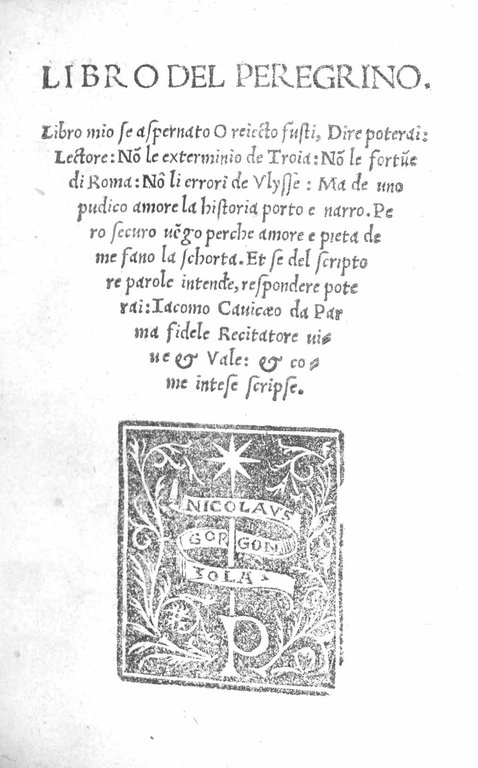 LIBRO DEL PEREGRINO.
Libro mio se aspernato O reiecto fusti, Dire poterai:
Lectore: Nõ le exterminio de Troia: Nõ le fortũe
di Roma: Nõ li errori de Vlysse : Ma de uno
pudico amore la historia porto e narro. Pe
ro securo uẽgo perche amore e pieta de
me fano la schorta. Et se del scripto
re parole intende, respondere pote
rai: Iacomo Cauicæo da Par
ma fidele Recitatore ui⸗
ue & Vale: & co⸗
me intese scripse.
NICOLAVS
GORGON
ZOLA
P